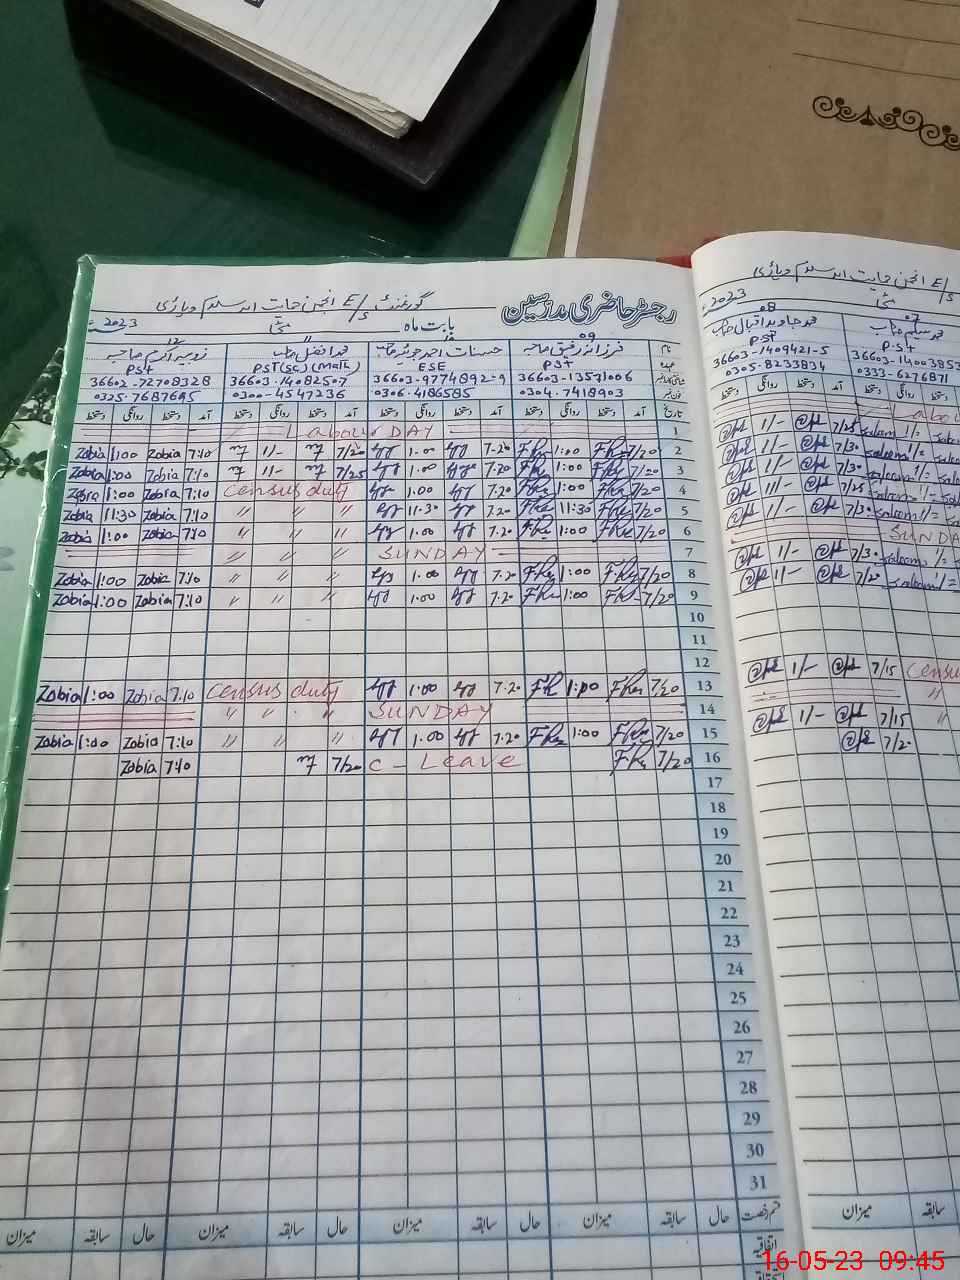 رجسٹر حاضری مدرسین
گورنمنٹ E/S انجمن حمایت اسلام وہاڑی
بابت ماہ مئی 2023ء
نام 09 فرزانہ رفیق صاحبہ حسنات احمد جویہ صاحب 11 محمد افضل صاحب 12 زوبیہ اکرم صاحبہ
عہدہ PST ESE PST(SC)(Math) PST
36603-13571006 36603-9774892-9 36603-14082507 36602-72708328
0304-7418903 0306-4186585 0300-4547236 0325-7687685
تاریخ آمد دستخط روانگی دستخط آمد دستخط روانگی دستخط آمد دستخط روانگی دستخط آمد دستخط روانگی دستخط
Labour DAY 1
Zobia 1:00 Zobia 7:10 1/- 7/20 1.00 7.20 1:00 7/20 2
Zobia 1:00 Zobia 7:10 1/- 7/25 1.00 7.20 1:00 7/20 3
Zobia 1:00 Zobia 7:10 Census duty 1.00 7.20 1:00 7/20 4
Zobia 11:30 Zobia 7:10 〃 〃 〃 11.30 7.20 11:30 7/20 5
Zobia 1:00 Zobia 7:10 〃 〃 〃 1.00 7.20 1:00 7/20 6
〃 〃 〃 SUNDAY 7
Zobia 1:00 Zobia 7:10 〃 〃 〃 1.00 7.20 1:00 7/20 8
Zobia 1:00 Zobia 7:10 〃 〃 〃 1.00 7.20 1:00 7/20 9
10
11
12
Zobia 1:00 Zobia 7:10 Census duty 1.00 7.20 1:00 7/20 13
〃 〃 〃 SUNDAY 14
Zobia 1:00 Zobia 7:10 〃 〃 〃 1.00 7.20 1:00 7/20 15
Zobia 7:10 7/20 C - Leave 7/20 16
17
18
19
20
21
22
23
24
25
26
27
28
29
30
31
قسم رخصت حال سابقہ میزان حال سابقہ میزان حال سابقہ میزان حال سابقہ میزان
اتفاقیہ
E/S انجمن حمایت اسلام وہاڑی
مئی 2023
07 محمد سلیم صاحب 08 محمد جاوید اقبال صاحب
PST PST
36603-1409421-5 36603-1400385
0305-8233834 0333-6276871
دستخط روانگی دستخط آمد دستخط روانگی دستخط
Labou
1/- 7/25 saleem 1/=
1/- 7/30 saleem 1/=
1/- 7/30 saleem 1/=
1/- 7/25 saleem 1/-
1/- 7/30 saleem 1/=
SUNDA
1/- 7/30 saleem
1/- 7/20 saleem 1/=
1/- 7/15 Census
〃
1/- 7/15 〃
7/20
میزان سابقہ
16-05-23 09:45